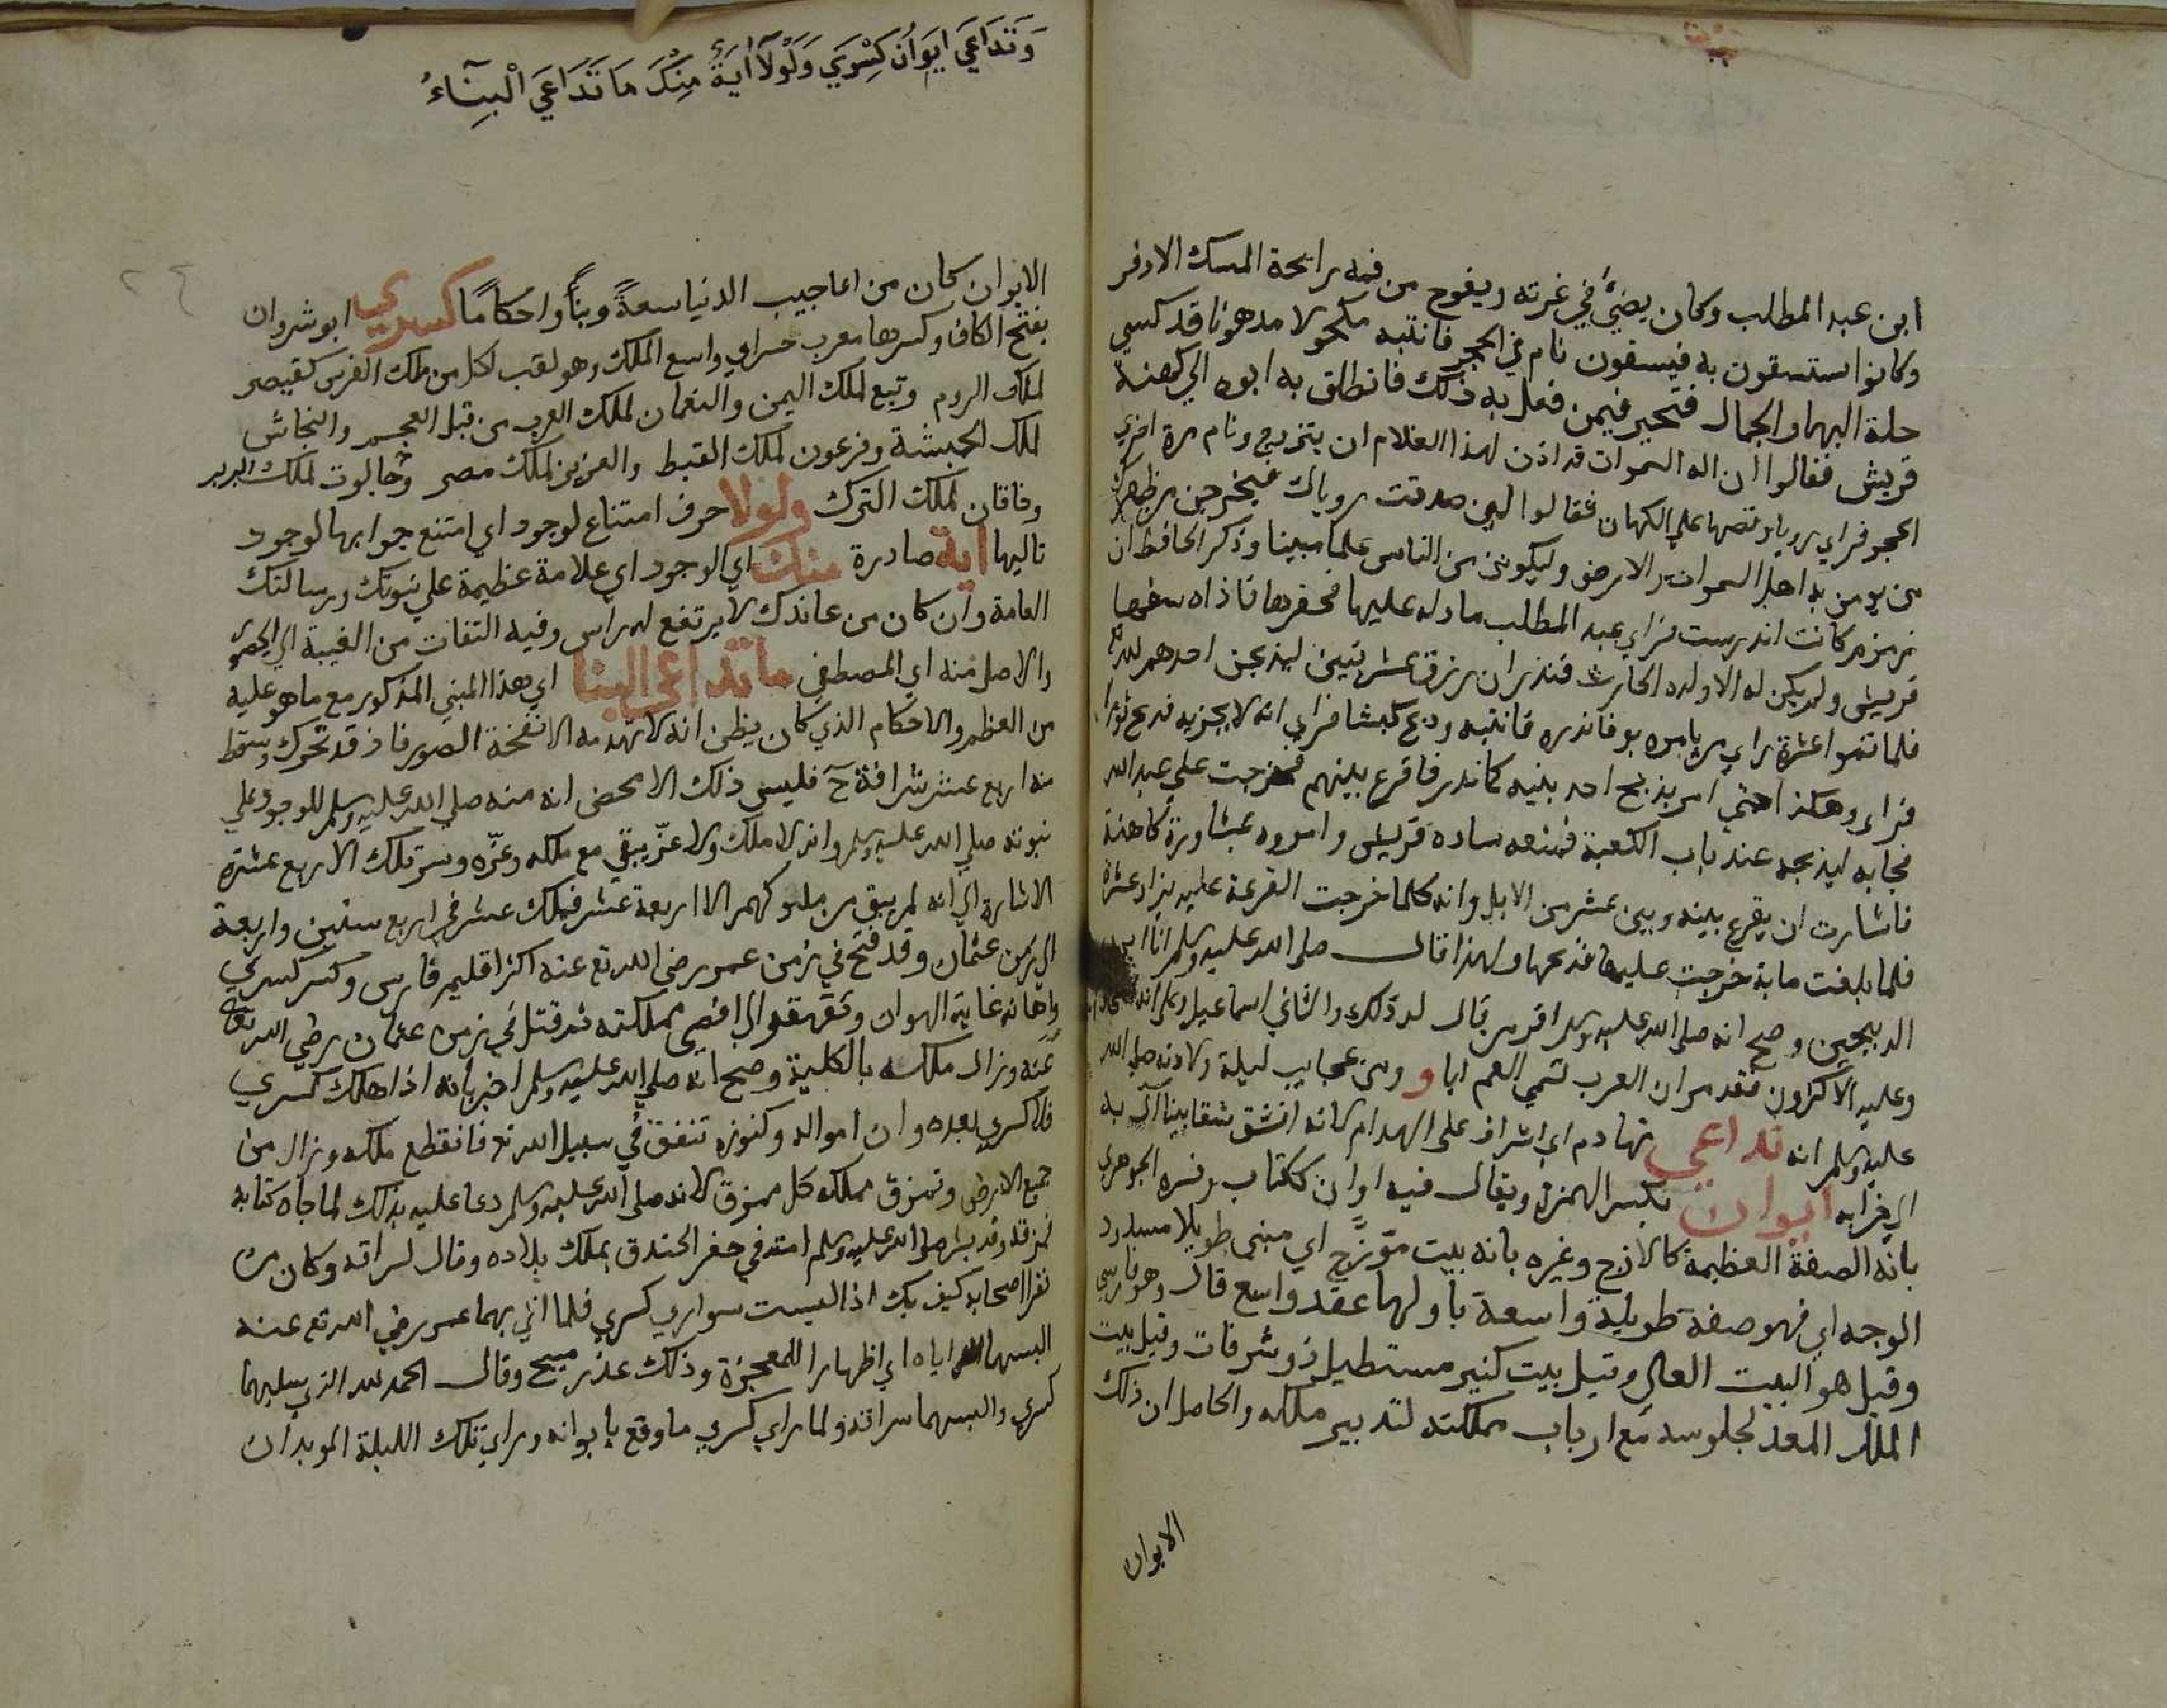 ابن عبد المطلب وكان يضيء في غرته ويفوح من فمه رايحة المسك الاذفر
وكانوا يستسقون به فيسقون نام في الحجر فانتبه مكحولا مدهونا قد كسي
حلة البها والجمال فتحير فيمن فعل به ذلك فانطلق به ابوه الي كهنة
قريش فقالوا ان اله السموات قد اذن لهذا الغلام ان يتزوج ونام مرة اخري
في الحجر فراي رويا وقصها علي الكهان فقالوا لين صدقت روياك فيخرجن من ظهرك
من يومن به اهل السموات والارض وليكونن من الناس علما مبينا وذكر الحافظ ان
زمزم كانت اندرست فراي عبد المطلب ما دله عليها فحفرها فاذاه
قريش ولم يكن له الا ولده الحارث فنذر ان رزق عشر بنين ليذبحن احدهم لله
فلما تموا عشرة راي من يامره بوفا نذره فانتبه وذبح كبشا فراي انه لا يجزيه فذبح ثورا
فراي وهكذا حتي امر بذبح احد بنيه كما نذر فاقرع بينهم فخرجت علي عبد الله
فجا به ليذبحه عند باب الكعبة فمنعه ساده قريش وامروه بمشاورة كاهنة
فاشارت ان يقرع بينه وبين عشر من الابل وانه كلما خرجت القرعة عليه يزاد عشرة
فلما بلغت ماية خرجت عليها فذبحها ولهذا قال صلي الله عليه وسلم انا ابن
الذبيحين وصح انه صلي الله عليه وسلم اقر من قال له ذلك والثاني اسماعيل وعلي انه
وعليه الاكثرون فقد مر ان العرب تسمي العم ابا و ومن عجايب ليلة ولادته صلي الله
عليه وسلم انه تداعي تهادم اي اشراف علي الهدام لانه انشق شقا بينا آل به
الي خرابه ايوان بكسر الهمزة ويقال فيه اوان ككتاب وفسره الجوهري
بانه الصفة العظيمة كالازج وغيره بانه بيت مؤزج اي مبني طويلا مسدود
الوجه اي فهو صفة طويلة واسعة باولها عقد واسع قال وهو فارسي
وقيل هو البيت العالي وقيل بيت كبير مستطيل ذو شرفات وقيل بيت
الملك المعد لجلوسه مع ارباب مملكته لتدبير ملكه والحاصل ان ذلك
الايوان
وَتَدَاعَي ايَوَانُ كِسْرَي وَلَوْلَا اٰيَةٌ مِنْكَ مَا تَدَاعَي الْبِنَآءُ
٢٤
الايوان كان من اعاجيب الدنيا سعةً وبناً واحكامًا كسري ابو شروان
بفتح الكاف وكسرها معرب خسراي واسع الملك وهو لقب لكل من ملك الفرس كقيصر
لملك الروم وتبع لملك اليمن والنعمان لملك العرب من قبل العجم والنجاش
لملك الحبشة وفرعون لملك القبط والعزيز لملك مصر وجالوت لملك البربر
وخاقان لملك الترك ولولا حرف امتناع لوجود اي امتنع جوابها لوجود
تاليها اية صادرة منك اي الوجود اي علامة عظيمة علي نبوتك ورسالتك
العامة وان كان من عاندك لا يرتفع له راس وفيه التفات من الغيبة الي
والاصل منه اي المصطفي ما تداعي البنا اي هذا المبني المذكور مع ما هو عليه
من العظم والاحكام الذي كان يظن انه لا تهدمه الا نفخة الصور فاذ قد تحرك وسقط
منه اربع عشر شرافة ح فليس ذلك الا محض انه منه صلي الله عليه وسلم للوجود علي
نبوته صلي الله عليه وسلم وانه لا ملك ولا عز يبقي مع ملكه وعزه وسر تلك الاربع عشرة
الاشارة الي انه لم يبق من ملوكهم الا اربعة عشر فملك عشر في اربع سنين واربعة
الي زمن عثمان وقد فتح في زمن عمر رضي الله تع عنه اكثر اقليم فارس وكسر كسري
واهانه غاية الهوان وتقهقر الي اقصي مملكته ثم قتل في زمن عثمان رضي الله تعالي
عنه وزال ملكه بالكلية وصح انه صلي الله عليه وسلم اخبر بانه اذا هلك كسري
فلا كسري بعده وان امواله وكنوزه تنفق في سبيل الله تع فانقطع ملكه وزال من
جميع الارض وتمزق مملكه كل ممزق لانه صلي الله عليه وسلم دعا عليه بذلك لما جاه كتابه
فمزقه وقد بشر صلي الله عليه وسلم امته في حفر الخندق بملك بلاده وقال لسراقه وكان من
نفر اصحابه كيف بك اذا لبست سواري كسري فلما اتي بهما عمر رضي الله تع عنه
البسهما اياه اي اظهارا للمعجزة وذلك عذر مبيح وقال الحمد لله الذي سلبهما
كسري والبسهما سراقه ولما راي كسري ما وقع بايوانه وراي تلك الليلة الموبدان